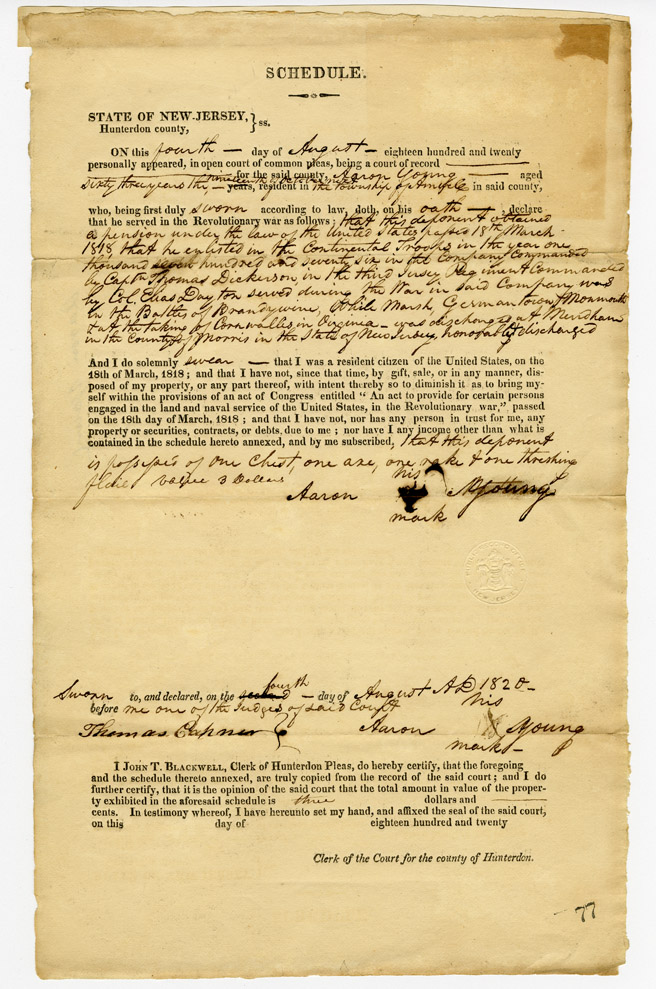 SCHEDULE.
STATE OF NEW-JERSEY, } ss.
Hunterdon county,
ON this fourth — day of August — eighteen hundred and twenty
personally appeared, in open court of common pleas, being a court of record
for the said county, Aaron Young — aged
Sixty three years the — years, resident in the township of Amwell in said county,
who, being first duly sworn according to law, doth, on his oath — declare
that he served in the Revolutionary war as follows; that this deponent obtained
a pension under the law of the United States passed 18th March
1818 that he enlisted in the Continental Troops in the year one
thousand seven hundred and seventy six in the Company Commanded
by Captn Thomas Dickerson in the third Jersey Regiment Commanded
by Col. Elias Dayton served during the War in said Company was
in the Battles of Brandywine, White Marsh, Germantown, Monmouth
& at the taking of Cornwallis in Virginia — was discharged at Mendham
in the County of Morris in the State of New Jersey, honorably discharged
And I do solemnly swear — that I was a resident citizen of the United States, on the
18th of March, 1818; and that I have not, since that time, by gift, sale, or in any manner, dis-
posed of my property, or any part thereof, with intent thereby so to diminish it as to bring my-
self within the provisions of an act of Congress entitled “ An act to provide for certain persons
engaged in the land and naval service of the United States, in the Revolutionary war,” passed
on the 18th day of March, 1818; and that I have not, nor has any person in trust for me, any
property or securities, contracts, or debts, due to me; nor have I any income other than what is
contained in the schedule hereto annexed, and by me subscribed, that this deponent
is possessed of one Chest, one axe, one rake & one threshing
flail value 3 Dollars
his
Aaron Young
mark
fourth
Sworn to, and declared, on the second — day of August AD 1820 —
before me one of the Judges of said Court his
Thomas Capner } Aaron X Young
mark —
I JOHN T. BLACKWELL, Clerk of Hunterdon Pleas, do hereby certify, that the foregoing
and the schedule thereto annexed, are truly copied from the record of the said court; and I do
further certify, that it is the opinion of the said court that the total amount in value of the proper-
ty exhibited in the aforesaid schedule is three dollars and
cents. In testimony whereof, I have hereunto set my hand, and affixed the seal of the said court,
on this day of eighteen hundred and twenty
Clerk of the Court for the county of Hunterdon.
77